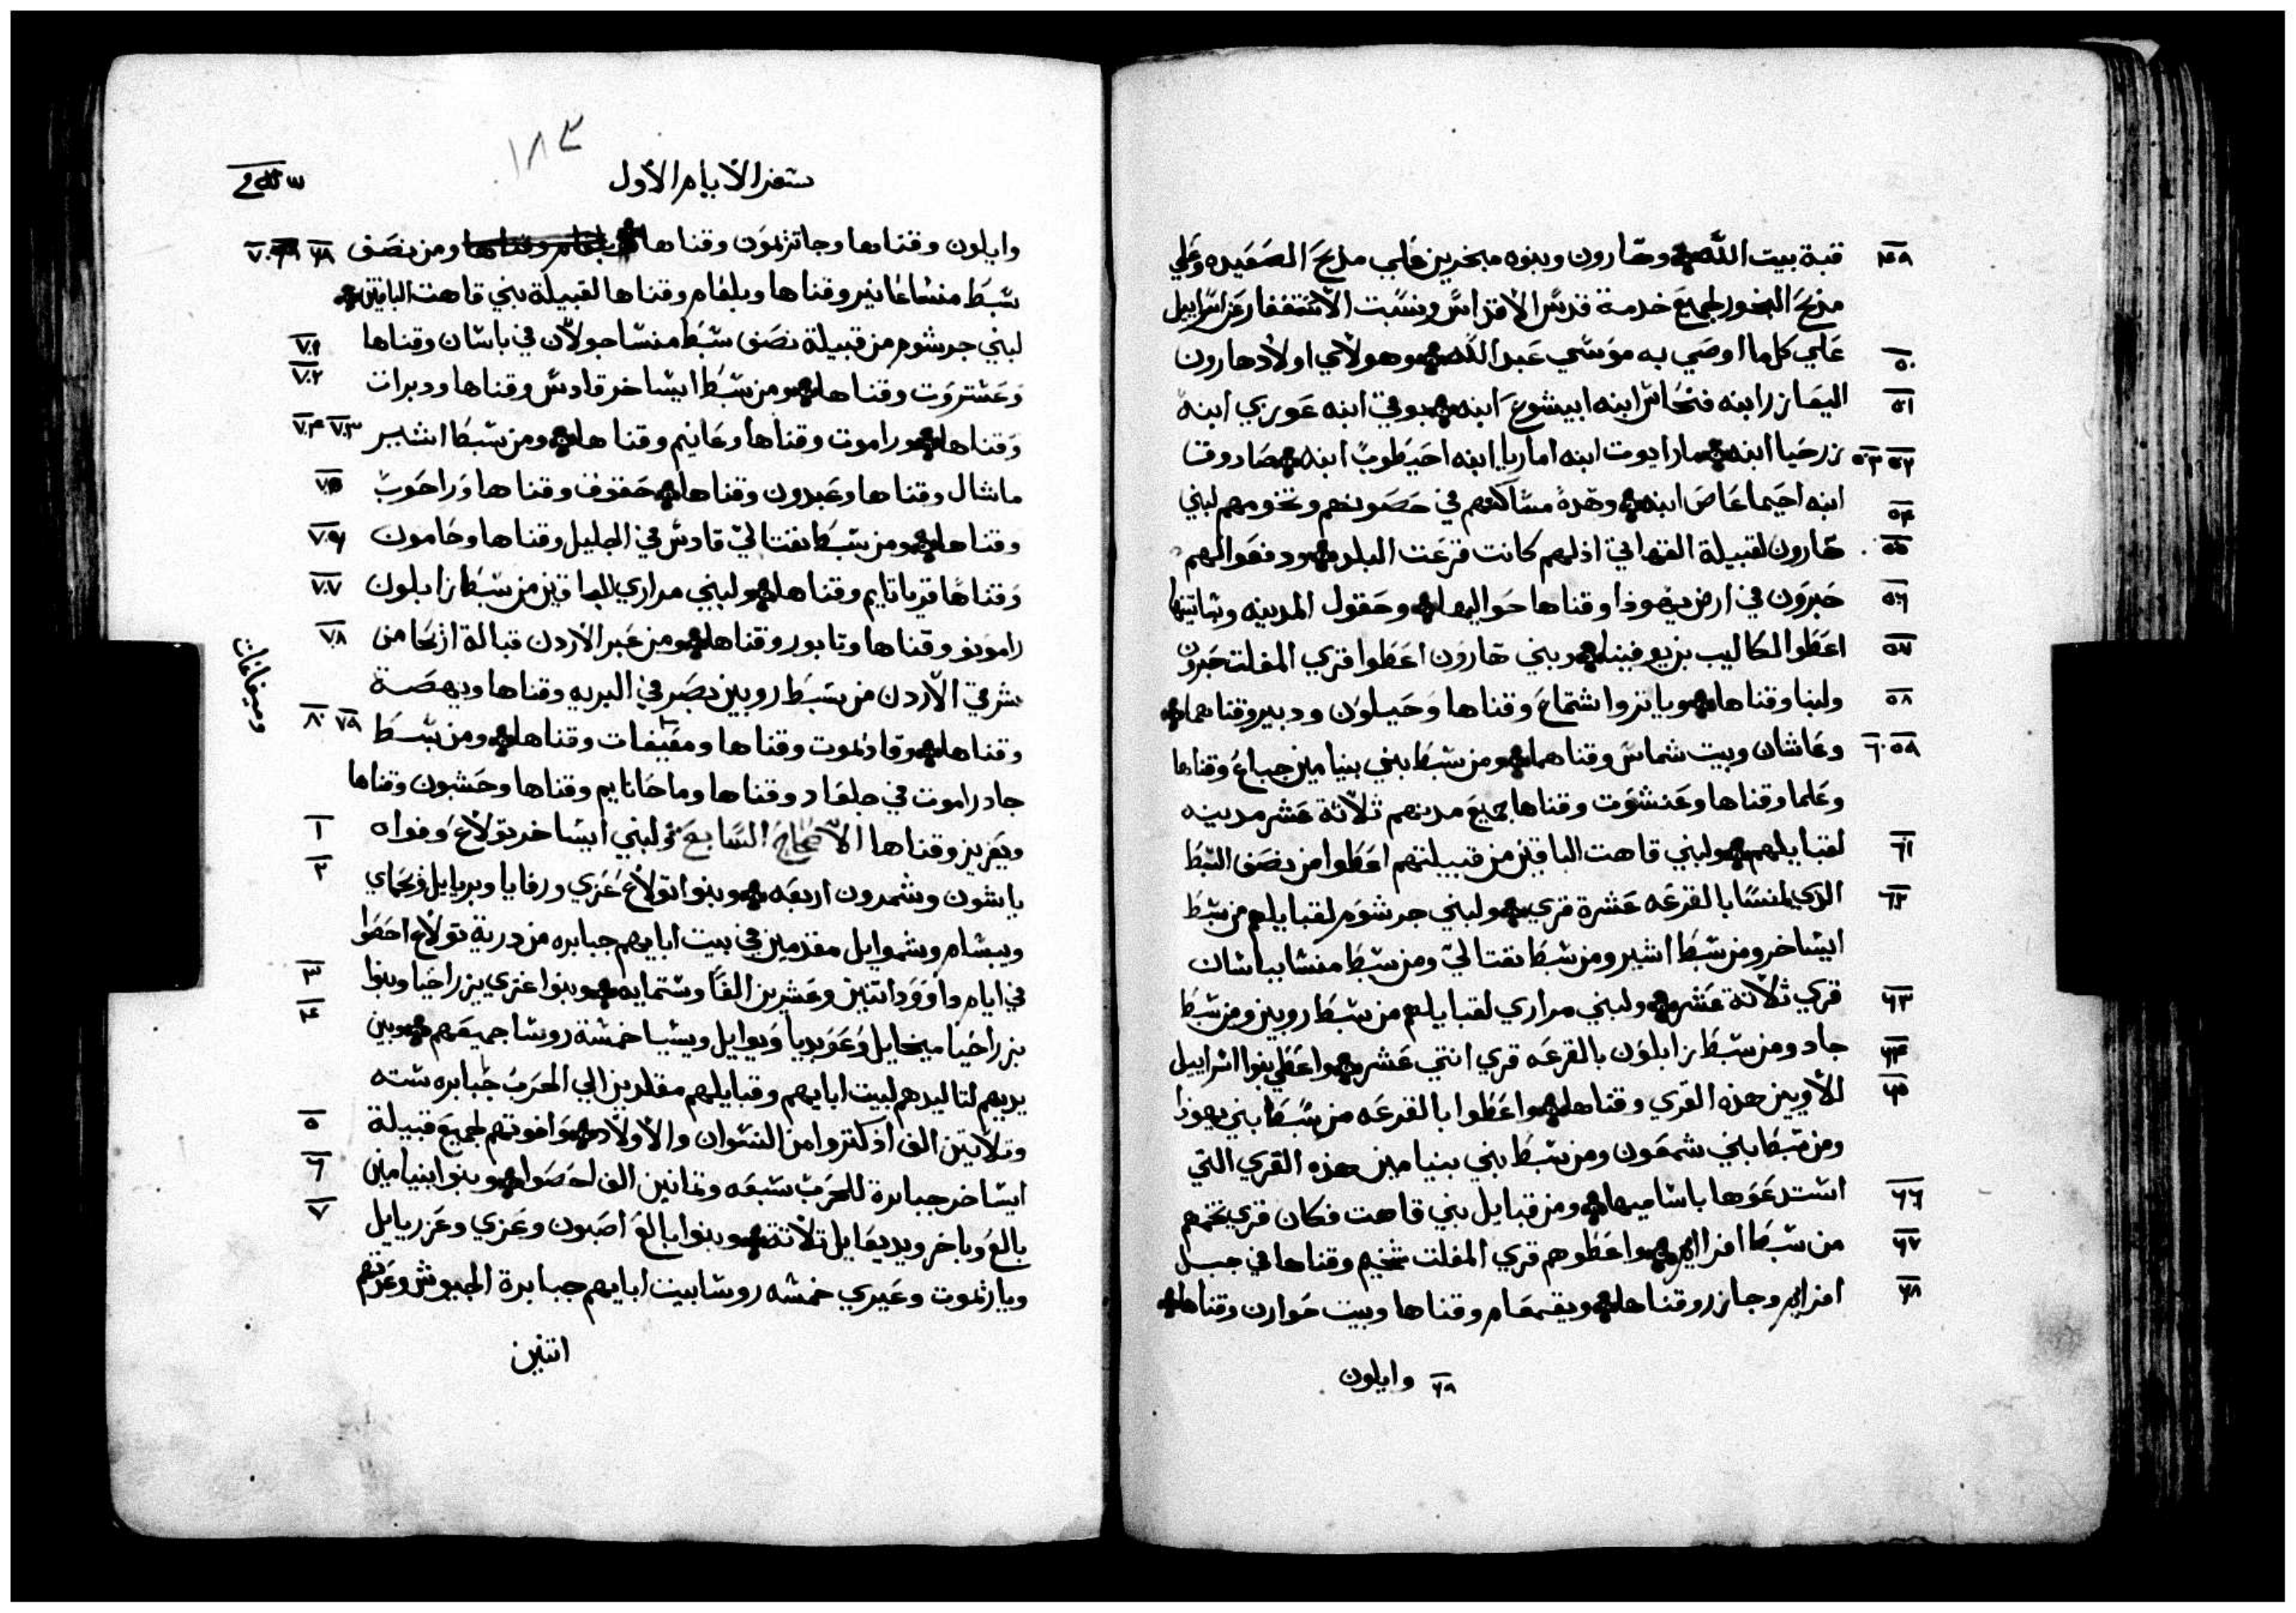 قبة بيت الله وهارون وبنوه مبخرين علي مدبح الصعيده وعلي ٤٩
مدبح البخور لجميع خدمة قدس الاقداس ونسبت الاستغفار عن اسراييل
علي كل ما اوصي به موسي عبد الله وهولاي اولاد هارون ٥٠
اليعازر ابنه فنحاس ابنه ابيشوع ابنه بوقي ابنه عوزي ابنه ٥١
زرحيا ابنه مارايوت ابنه اماريا ابنه احيطوب ابنه صادوق ٥٢ ٥٣
ابنه احيماعاص ابنه وهدة مساكنهم في حصونهم وتخومهم لبني ٥٤
هارون لقبيلة القهاتي اذ لهم كانت قرعت البلد ودفعوا لهم ٥٥
حبرون في ارض يهوذا وقناها حواليها وحقول المدينه وشاتيتها ٥٦
اعطوا لكاليب بن يوفينا وبني هارون اعطوا قري المفلت حبرون ٥٧
ولبنا وقناها وياتر واشتماع وقناها وحيلون ودبير وقناهما ٥٨
وعاشان وبيت شماس وقناهما ومن سبط بني بنيامين جباع وقناها ٥٩ ٦٠
وعلما وقناها وعنتوت وقناها جميع مدينهم ثلاثة عشر مدينه
لقبايلهم ولبني قاهت الباقين من قبيلتهم اعطوا من نصف السبط ٦١
الذي لمنسا بالقرعه عشرة قري ولبني جرشوم لقبايلهم من سبط ٦٢
ايساخر ومن سبط اشير ومن سبط نفتالي ومن سبط منسا بباشان
قري ثلاثة عشر ولبني مراري لقبايلهم من سبط روبين ومن سبط ٦٣
جاد ومن سبط زابلون بالقرعه قري اتني عشر واعطي بنوا اسراييل ٦٤
للاويين هذه القري وقناها واعطوا بالقرعه من سبط بني يهوذا ٦٥
ومن سبط بني شمعون ومن سبط بني بنيامين هذه القري التي
استدعوها باساميها ومن قبايل بني قاهت فكان قري تخمهم ٦٦
من سبط افرايم واعطوهم قري المفلت شخيم وقناها في جبل ٦٧
افرايم وجازر وقناها ويقمعام وقناها وبيت حوارن وقناها ٦٨
٦٩ وايلون
١٨٣
سفر الايام الاول
وايلون وقناها وجاترمون وقناها ومن نصف ٦٩ ٧٠
سبط منسا عانير وقناها وبلعام وقناها لقبيلة بني قاهت الباقين
لبني جرشوم من قبيلة نصف سبط منسا جولان في باشان وقناها ٧١
وعشتروت وقناها ومن سبط ايساخر قادس وقناها ودبرات ٧٢
وقناها وراموت وقناها وعانيم وقناها ومن سبط اشير ٧٣ ٧٤
ماشال وقناها وعبدون وقناها حقوق وقناها وراحوب ٧٥
وقناها ومن سبط نفتالي قادس في الجليل وقناها وحامون ٧٦
وقناها قرياتايم وقناها ولبني مراري الباقين من سبط زابلون ٧٧
رامونو وقناها وتابور وقناها ومن عبر الاردن قبالة اريحا من ٧٨
شرقي الاردن من سبط روبين بصر في البريه وقناها ويهصة
وقناها وقاديموت وقناها وميفات وقناها ومن سبط ٧٩ ٨٠
جاد راموت في جلعاد وقناها وماحانايم وقناها وحشبون وقناها
ويعزير وقناها الاصحاح السابع ولبني ايساخر تولاع وفواه ١
ياشون وشمرون اربعه وبنوا تولاع عزي ورفايا ويريايل ويحماي ٢
ويبسام وشموايل مقدمين في بيت ابايهم جبابره من درية تولاع احصوا
في ايام داوود اتنين وعشرين الفا وستمايه وبنوا عزي يزراحيا وبنوا ٣
يزراحيا ميخايل وعوبديا ويوايل ويشيا خمسة روسا جميعهم وبين ٤
يديهم لتاليدهم لبيت ابايهم وقبايلهم مقلدين الي الحرب جبابره سته
وتلاتين الف اذ كثروا من النسوان والاولاد واخوتهم لجميع قبيلة ٥
ايساخر جبابرة للحرب سبعه وتمانين الف احصوا وبنوا بنيامين ٦
بالع وباخر ويديعايل تلاتة وبنوا بالع اصبون وعزي وعزريايل ٧
وياريموت وعيري خمسه روسا بيت ابايهم جبابرة الجيوش وعدتهم
اتنين